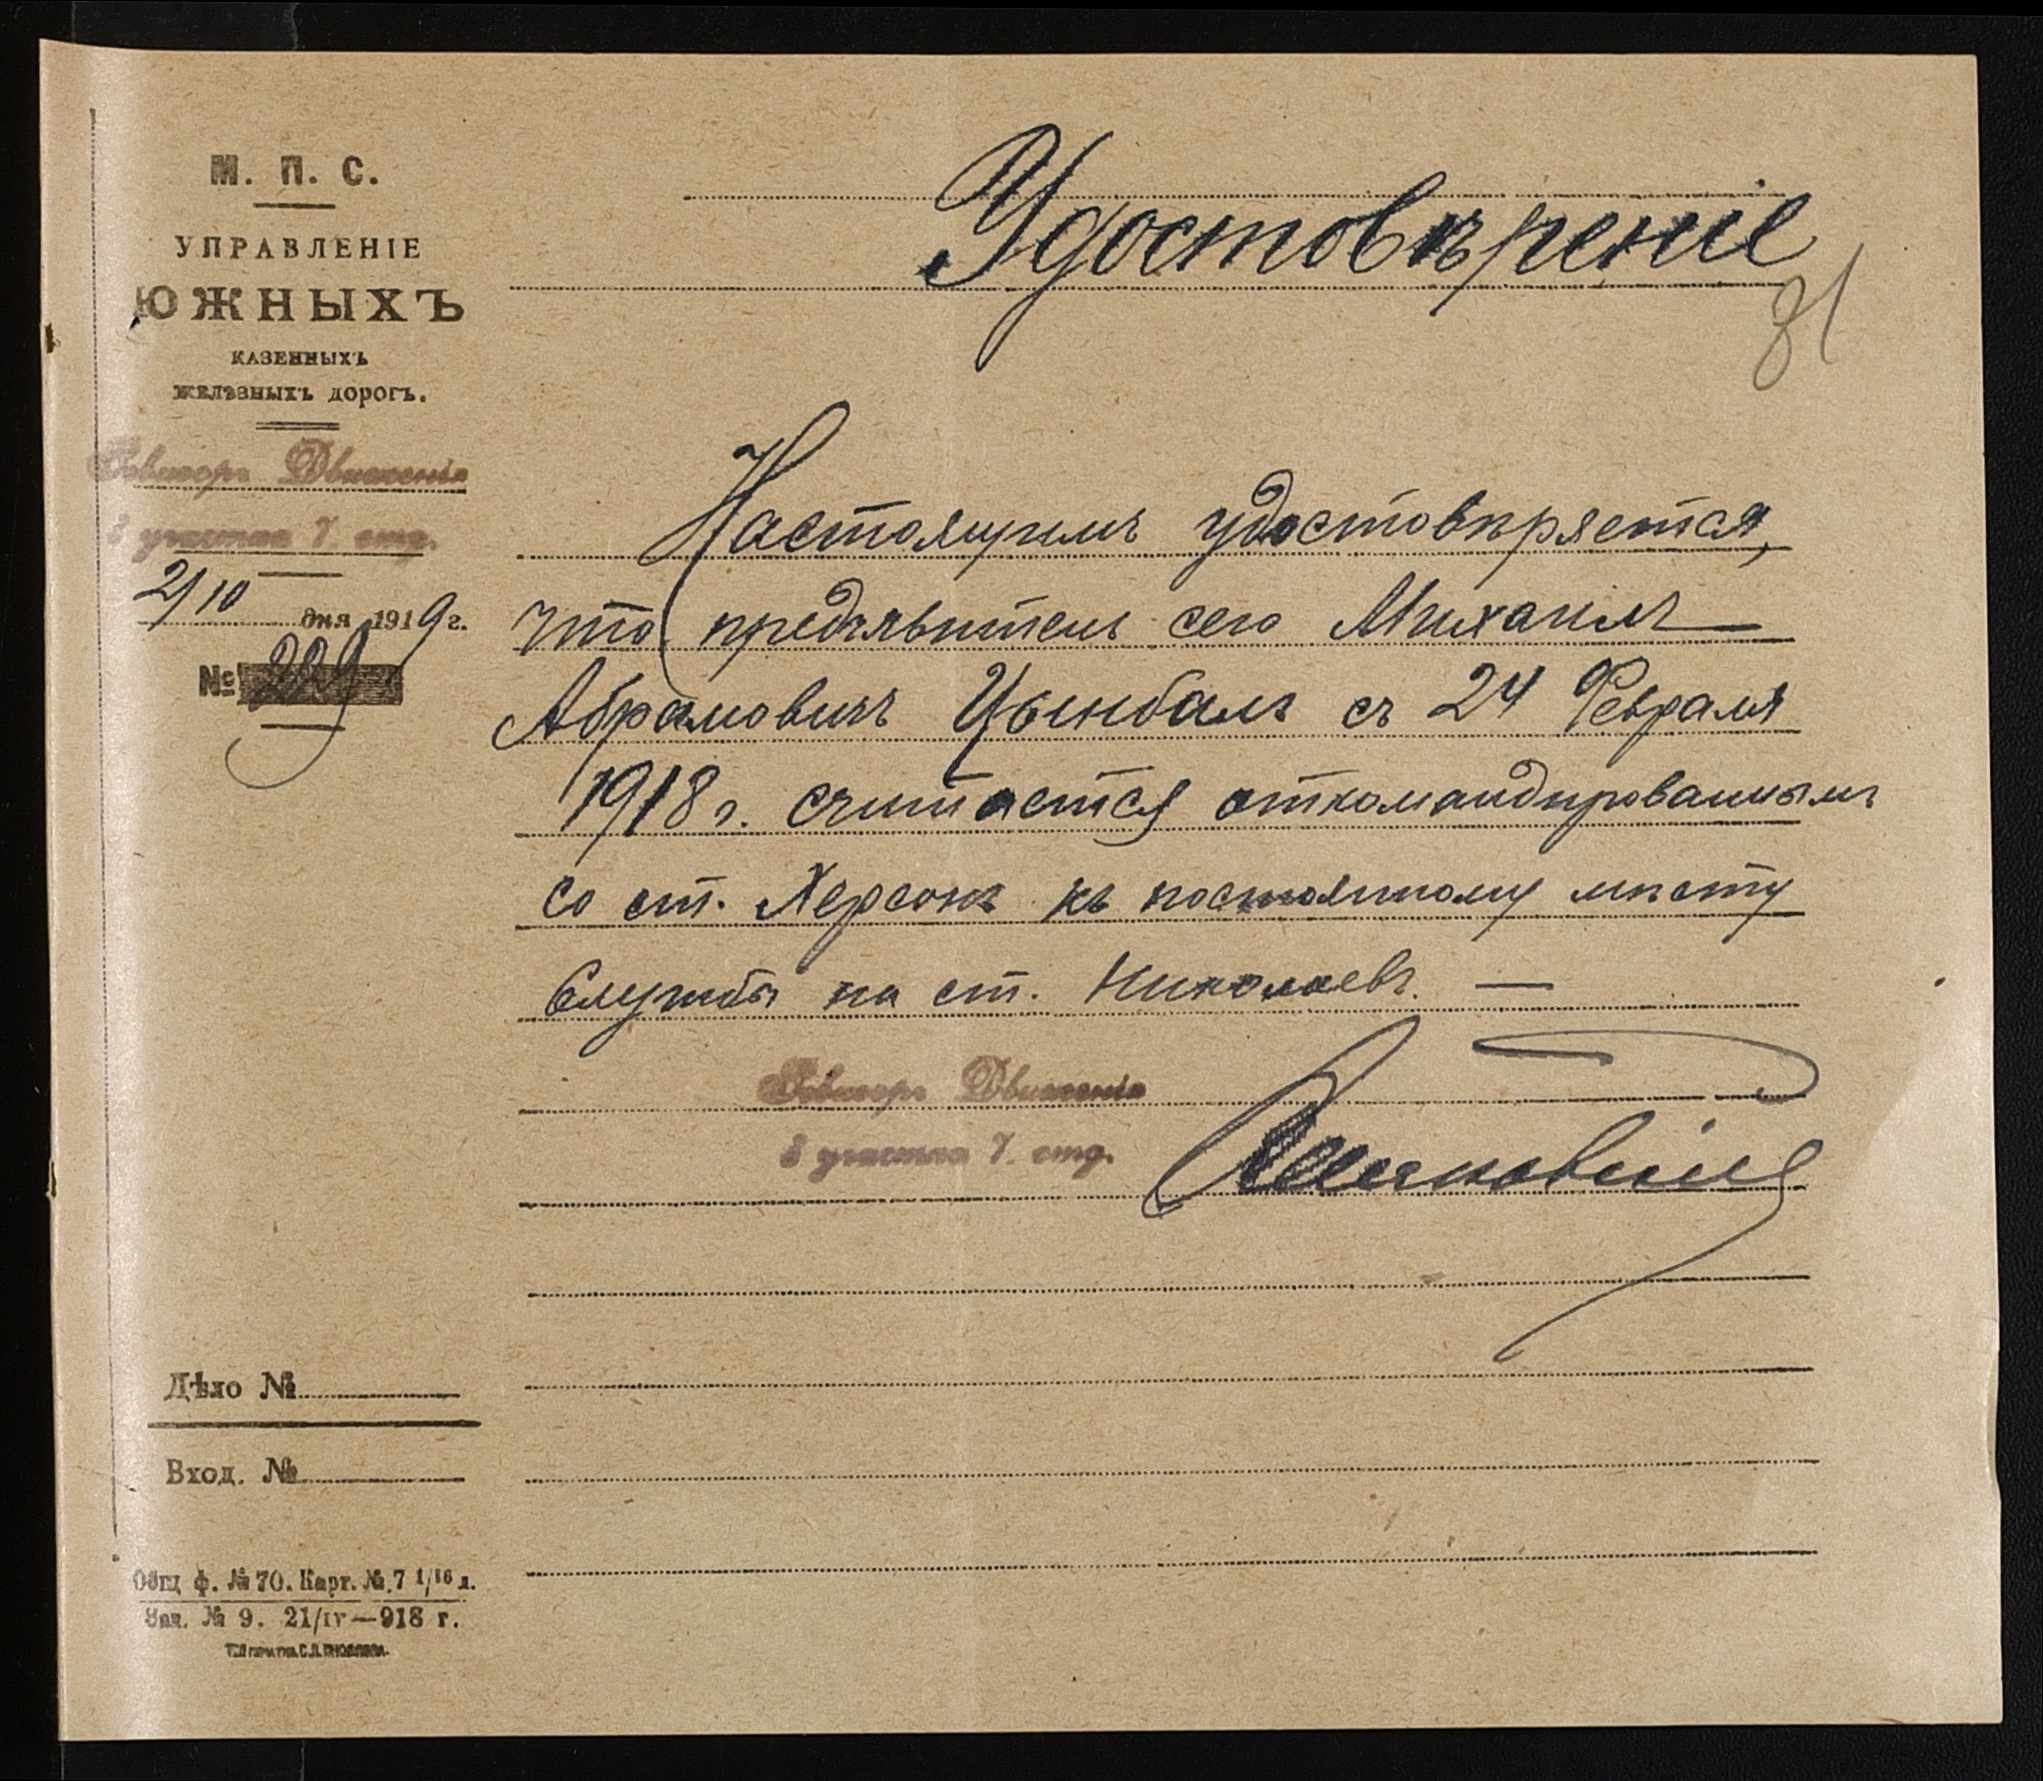 М. П. С.
УПРАВЛЕНІЕ
ЮЖНЫХЪ
КАЗЕННЫХЪ
ЖЕЛѢЗНЫХЪ ДОРОГЪ.
Ревизоръ Движенія
8 участка 7 отд.
2/10 дня 1919 г.
№ 229
Удостовѣреніе
31
Настоящимъ удостовѣряется,
что предъявитель сего Михаилъ
Абрамовичъ Цынбалъ съ 24 Февраля
1918 г. считается откомандированнымъ
со ст. Херсонъ къ постоянному мѣсту
службы на ст. Николаевъ. —
Ревизоръ Движенія
8 участка 7. отд.
Дѣло №
Вход. №
Общ ф. № 70. Карт. № 7 1/16 л.
Зак. № 9. 21/IV—918 г.